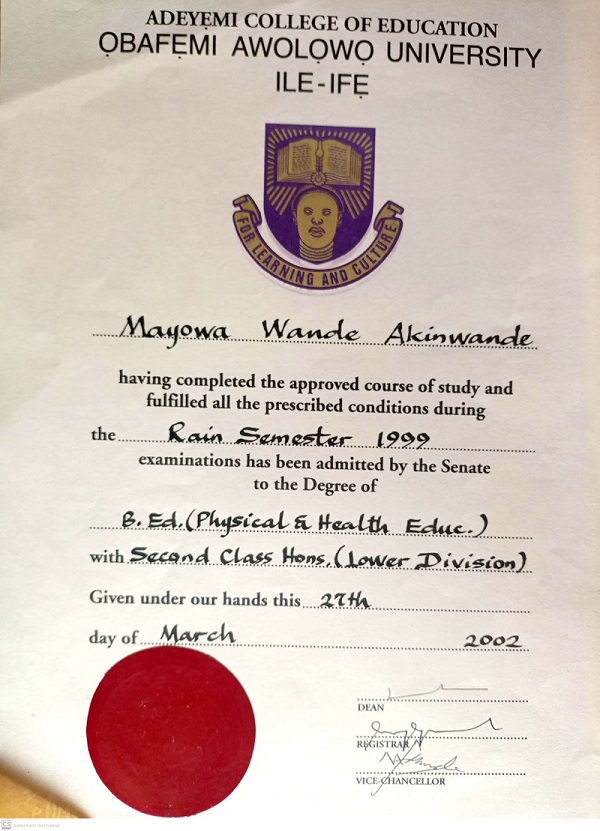 ADEYẸMI COLLEGE OF EDUCATION
ỌBAFẸMI AWOLỌWỌ UNIVERSITY
ILE-IFẸ
FOR LEARNING AND CULTURE
Mayowa Wande Akinwande
having completed the approved course of study and
fulfilled all the prescribed conditions during
the Rain Semester 1999
examinations has been admitted by the Senate
to the Degree of
B. Ed. (Physical & Health Educ.)
with Second Class Hons. (Lower Division)
Given under our hands this 27th
day of March 2002
DEAN
REGISTRAR
VICE-CHANCELLOR
CS Scanned with CamScanner